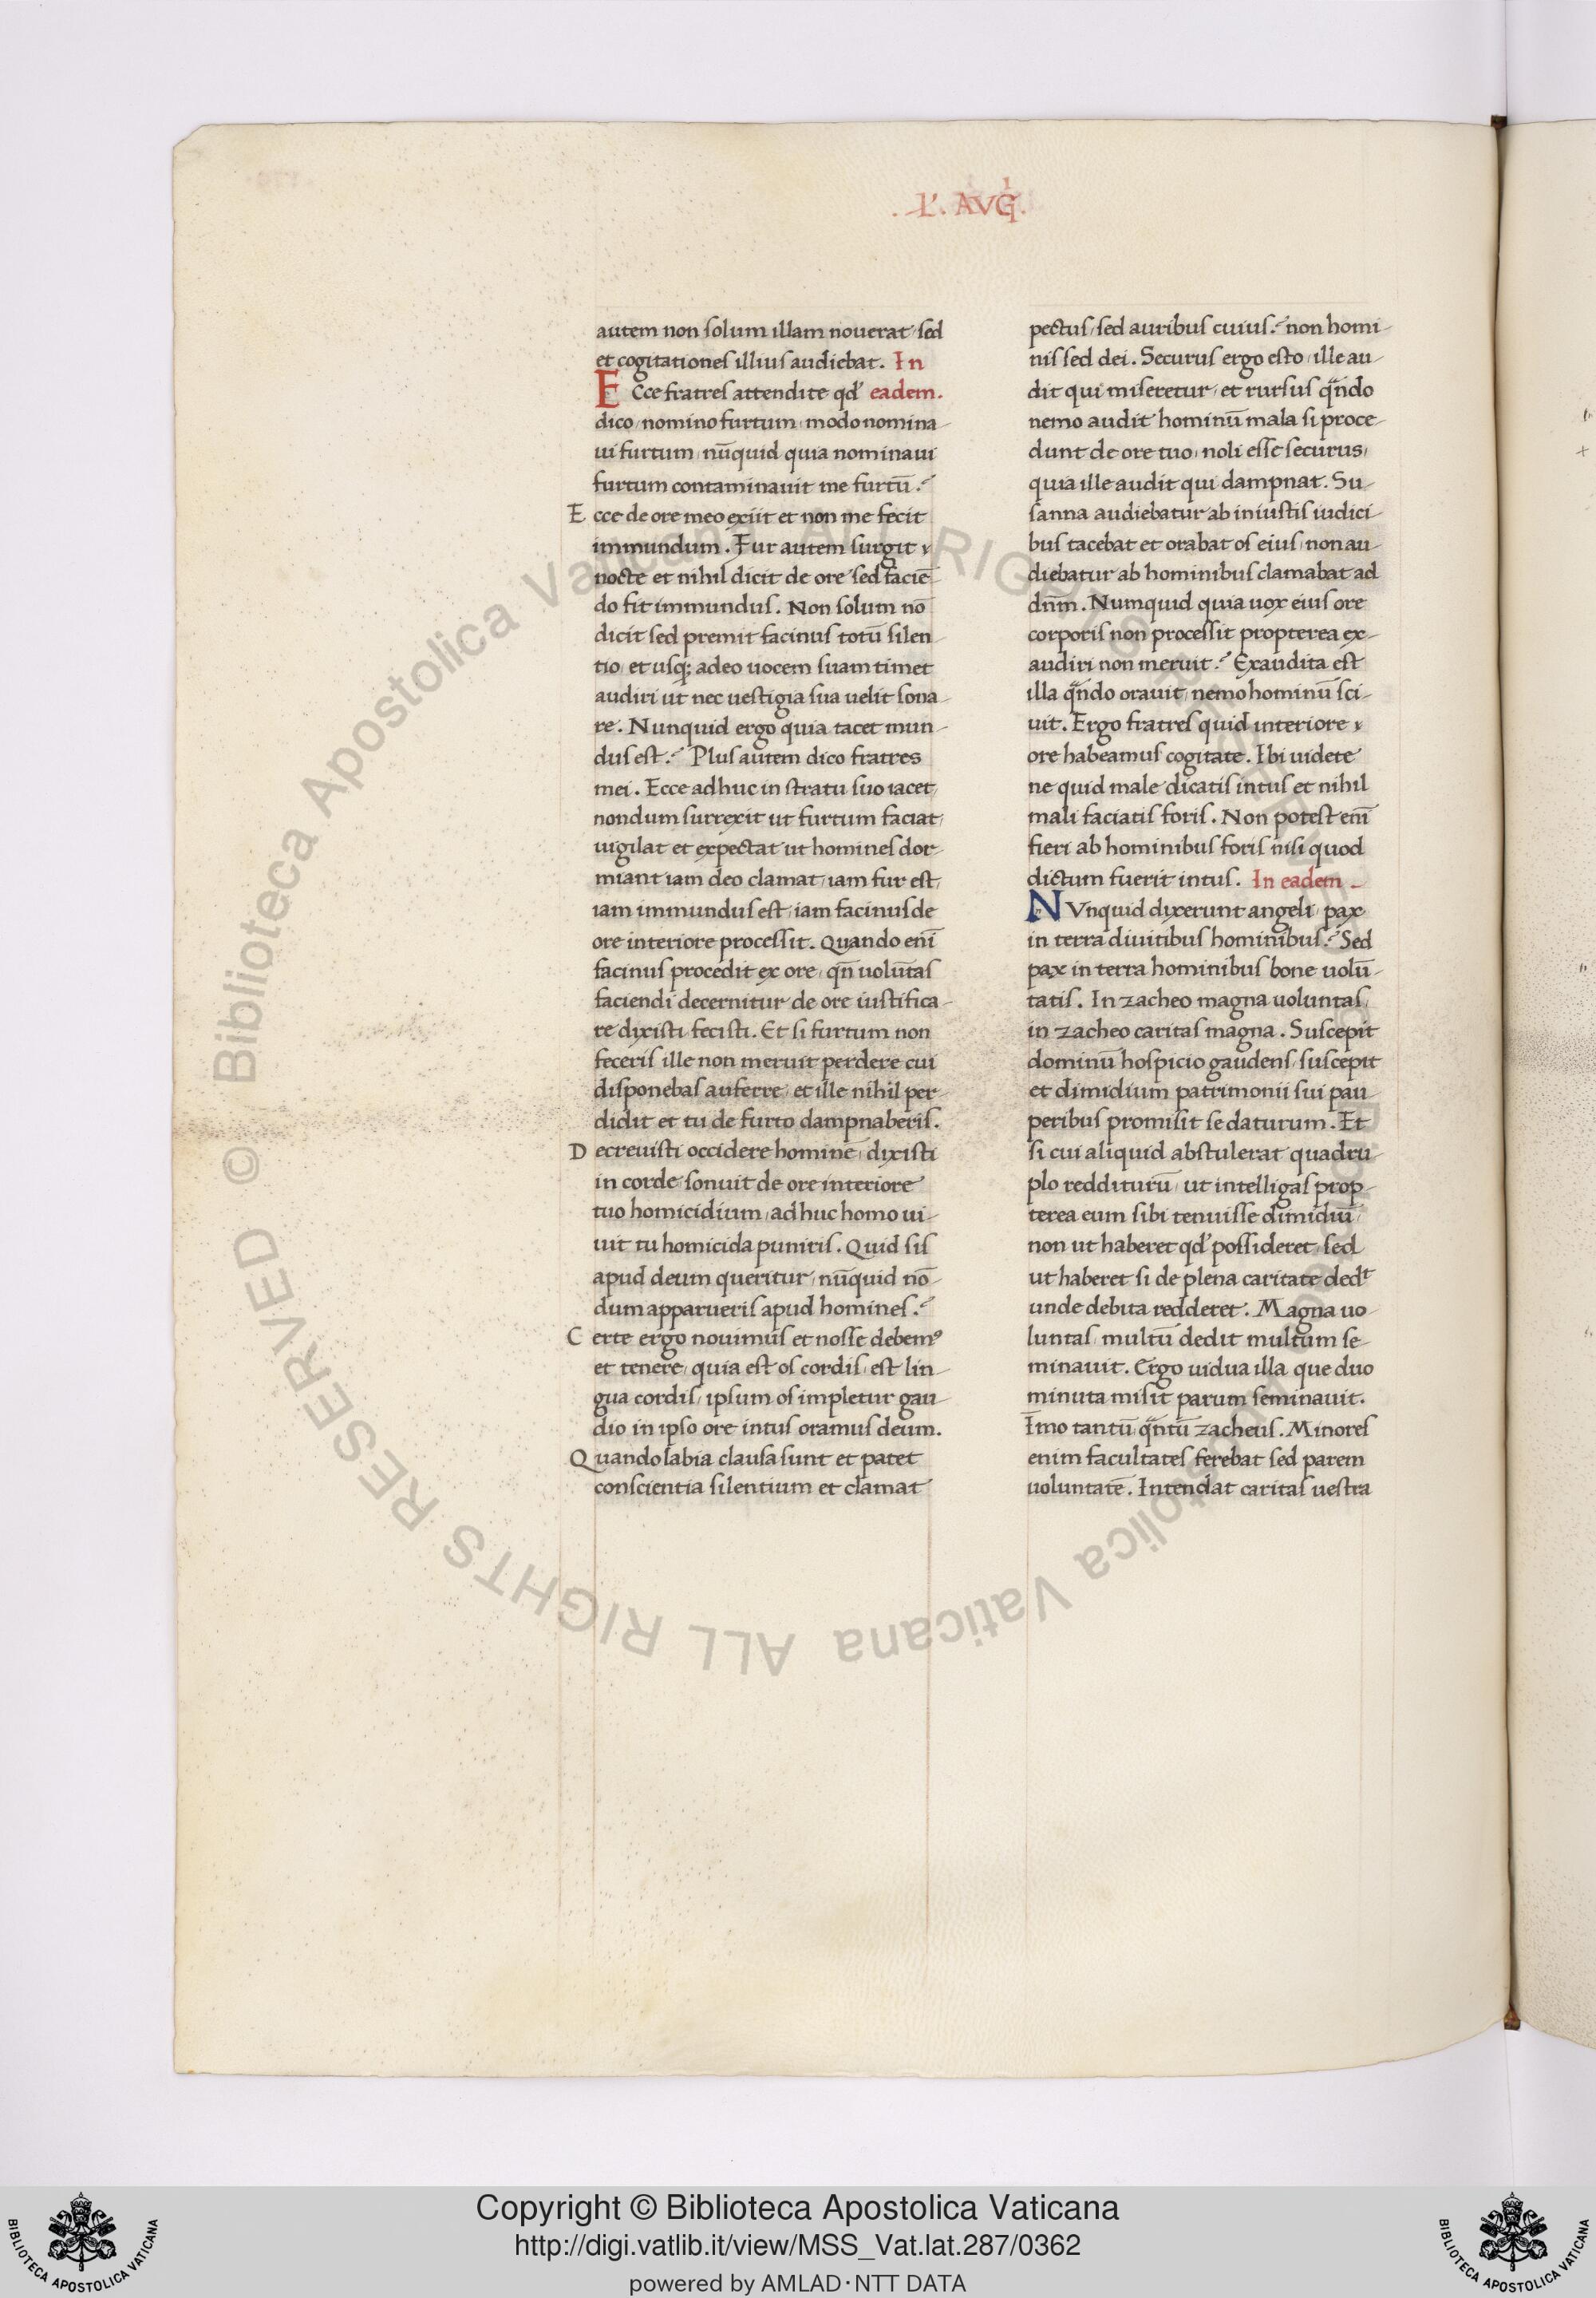 .L'. AVGⁱ.
autem non solum illam nouerat sed
et cogitationes illius audiebat. In
Ecce fratres attendite qd' eadem.
dico, nomino furtum, modo nomina-
ui furtum, nūquid quia nominaui
furtum contaminauit me furtū?
Ecce de ore meo exiit et non me fecit
immundum. Fur autem surgit
nocte et nihil dicit de ore sed faciē-
do fit immundus. Non solum nō
dicit sed premit facinus totū silen-
tio, et usq; adeo uocem suam timet
audiri ut nec uestigia sua uelit sona-
re. Nunquid ergo quia tacet mun-
dus est? Plus autem dico fratres
mei. Ecce adhuc in stratu suo iacet,
nondum surrexit ut furtum faciat,
uigilat et expectat ut homines dor-
miant iam deo clamat, iam fur est,
iam immundus est, iam facinus de
ore interiore processit. Quando eni̅
facinus procedit ex ore, qn̅ uolūtas
faciendi decernitur de ore iustifica-
re dixisti fecisti. Et si furtum non
feceris ille non meruit perdere cui
disponebas auferre, et ille nihil per-
didit et tu de furto dampnaberis.
Decreuisti occidere hominē, dixisti
in corde sonuit de ore interiore
tuo homicidium, adhuc homo ui-
uit tu homicida puniris. Quid sis
apud deum queritur, nūquid nō-
dum apparueris apud homines?
Certe ergo nouimus et nosse debem⁹
et tenere, quia est os cordis, est lin-
gua cordis, ipsum os impletur gau-
dio in ipso ore intus oramus deum.
Quando labia clausa sunt et patet
conscientia silentium et clamat
pectus, sed auribus cuius? non homi-
nis sed dei. Securus ergo esto, ille au-
dit qui miseretur, et rursus qn̅do
nemo audit hominū mala si proce-
dunt de ore tuo, noli esse securus,
quia ille audit qui dampnat. Su-
sanna audiebatur ab iniustis iudici-
bus tacebat et orabat os eius, non au-
diebatur ab hominibus clamabat ad
dn̅m. Numquid quia uox eius ore
corporis non processit propterea ex-
audiri non meruit? Exaudita est
illa qn̅do orauit, nemo hominū sci-
uit. Ergo fratres quid interiore
ore habeamus cogitate. Ibi uidete
ne quid male dicatis intus et nihil
mali faciatis foris. Non potest eni̅
fieri ab hominibus foris nisi quod
dictum fuerit intus. In eadem
NVnquid dixerunt angeli, pax
in terra diuitibus hominibus? Sed
pax in terra hominibus bone uolū-
tatis. In zacheo magna uoluntas,
in zacheo caritas magna. Suscepit
dominū hospicio gaudens, suscepit
et dimidium patrimonii sui pau-
peribus promisit se daturum. Et
si cui aliquid abstulerat quadru-
plo redditurū, ut intelligas prop-
terea eum sibi tenuisse dimidiū
non ut haberet qd' possideret, sed
ut haberet si de plena caritate dedᵗ
unde debita redderet. Magna uo-
luntas, multū dedit multum se-
minauit. Ergo uidua illa que duo
minuta misit parum seminauit.
Īmo tantū qn̅tū zacheus. Minores
enim facultates ferebat sed parem
uoluntatē. Intendat caritas uestra
© Biblioteca Apostolica Vaticana ALL RIGHTS RESERVED
© Biblioteca Apostolica Vaticana ALL RIGHTS RESERVED
Copyright © Biblioteca Apostolica Vaticana
http://digi.vatlib.it/view/MSS_Vat.lat.287/0362
powered by AMLAD·NTT DATA
BIBLIOTECA APOSTOLICA VATICANA
BIBLIOTECA APOSTOLICA VATICANA